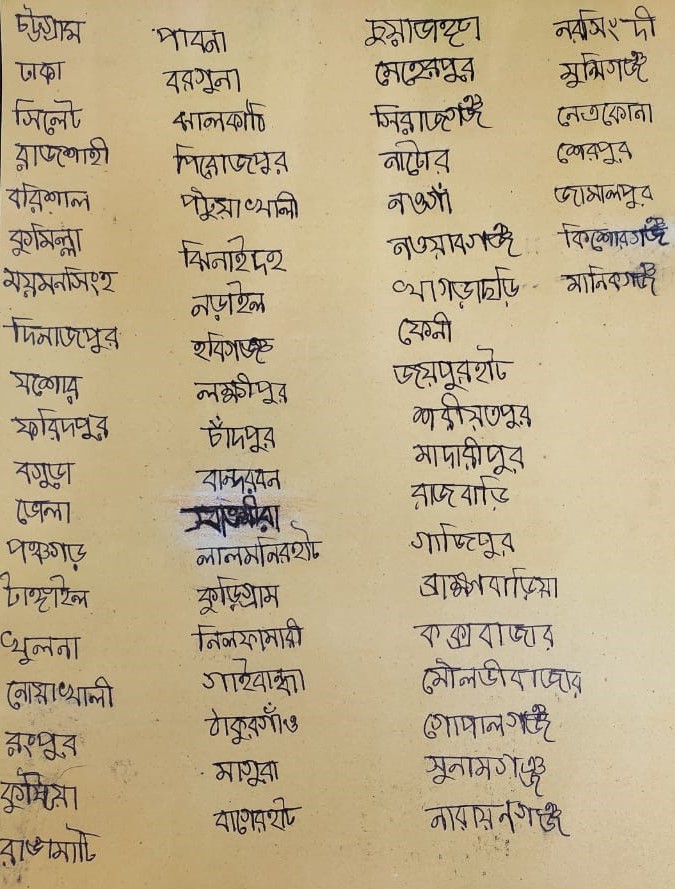 চট্টগ্রাম
ঢাকা
সিলেট
রাজশাহী
বরিশাল
কুমিল্লা
ময়মনসিংহ
দিনাজপুর
যশোর
ফরিদপুর
বগুড়া
ভোলা
পঞ্চগড়
টাঙ্গাইল
খুলনা
নোয়াখালী
রংপুর
কুষ্টিয়া
রাঙামাটি
পাবনা
বরগুনা
ঝালকাঠি
পিরোজপুর
পটুয়াখালী
ঝিনাইদহ
নড়াইল
হবিগঞ্জ
লক্ষীপুর
চাঁদপুর
বান্দরবন
সাতক্ষীরা
লালমনিরহাট
কুড়িগ্রাম
নিলফামারী
গাইবান্ধা
ঠাকুরগাঁও
মাগুরা
বাগেরহাট
চুয়াডাঙ্গা
মেহেরপুর
সিরাজগঞ্জ
নাটোর
নওগাঁ
নওয়াবগঞ্জ
খাগড়াছড়ি
ফেনী
জয়পুরহাট
শরীয়তপুর
মাদারীপুর
রাজবাড়ি
গাজিপুর
ব্রাহ্মণবাড়িয়া
কক্সবাজার
মৌলভীবাজার
গোপালগঞ্জ
সুনামগঞ্জ
নারায়নগঞ্জ
নরসিংদী
মুন্সিগঞ্জ
নেত্রকোনা
শেরপুর
জামালপুর
কিশোরগঞ্জ
মানিকগঞ্জ